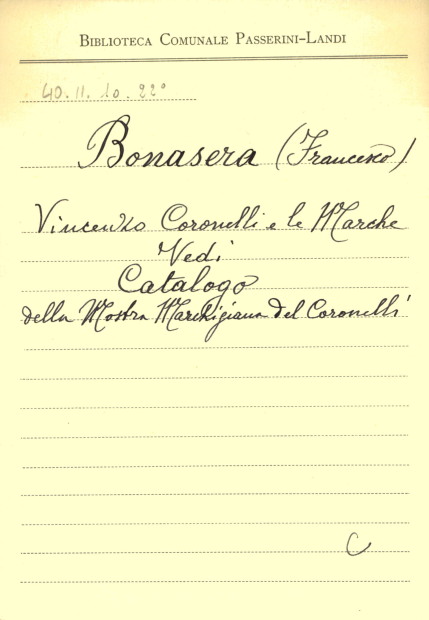 BIBLIOTECA COMUNALE PASSERINI-LANDI
40.II.10.22°
Bonasera (Francesco)
Vincenzo Coronelli e le Marche
Vedi
Catalogo
della Mostra Marchigiana del Coronelli
C